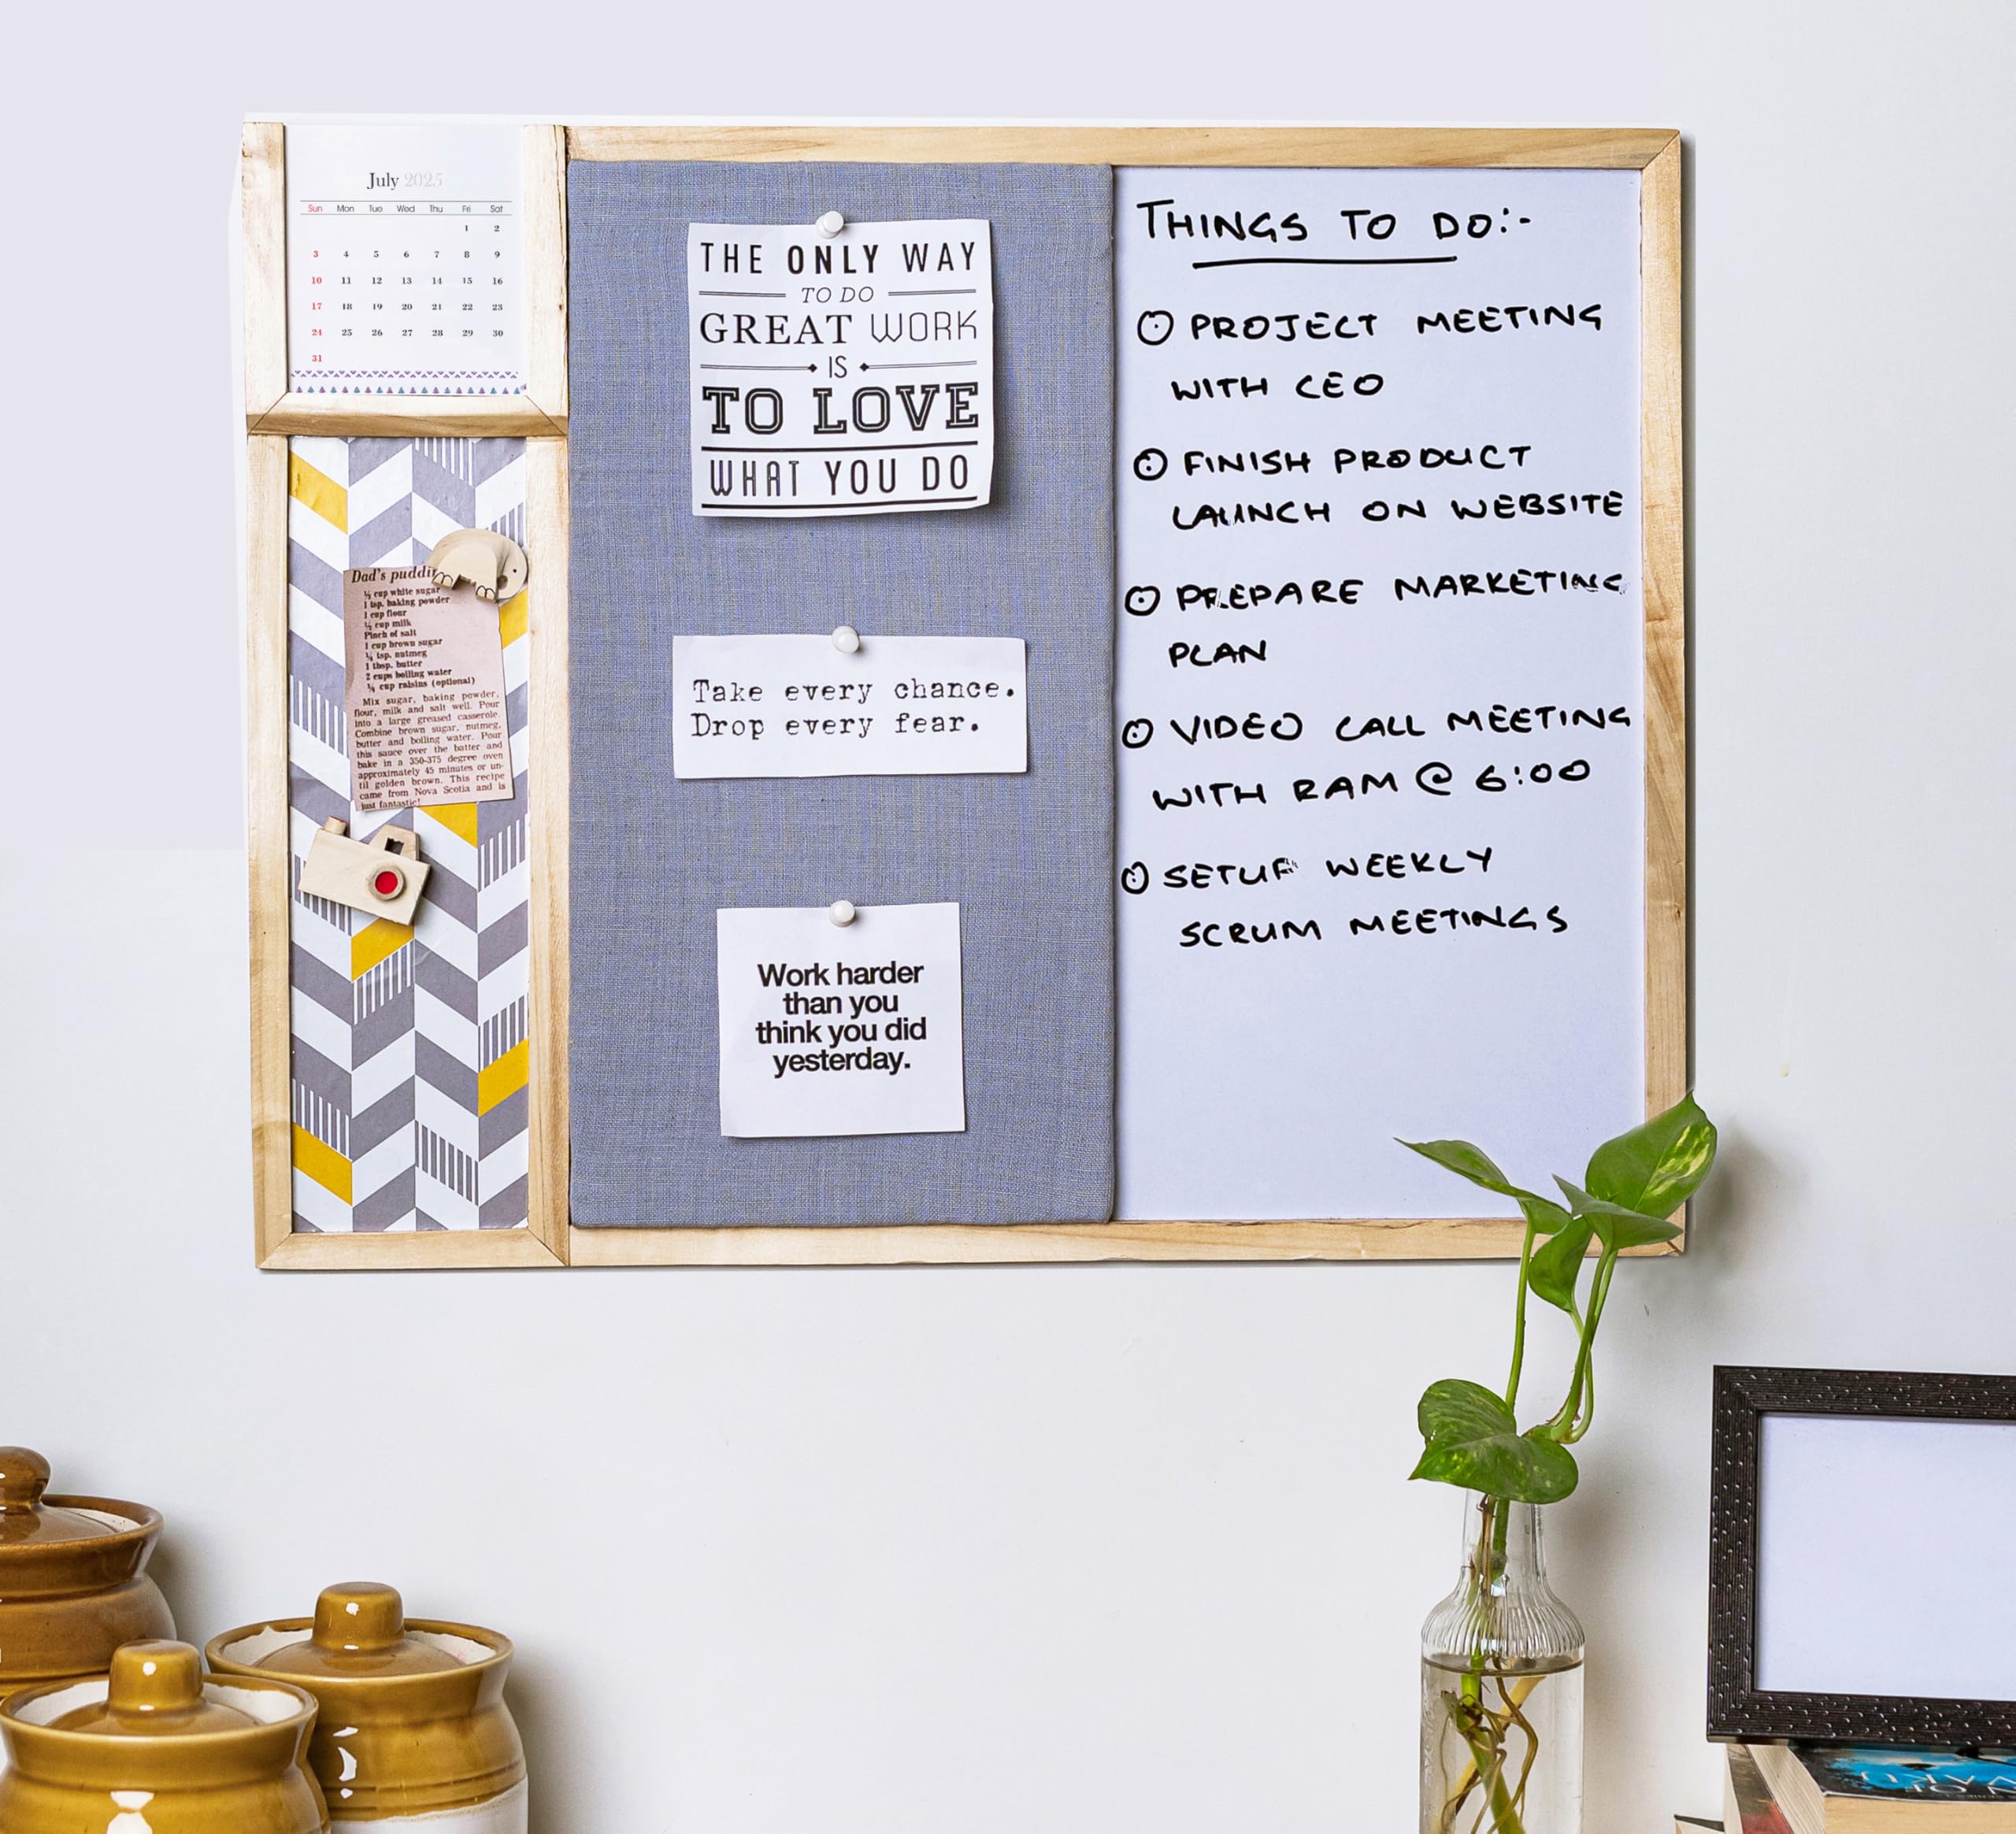 July 2025
Sun Mon Tue Wed Thu Fri Sat
1 2
3 4 5 6 7 8 9
10 11 12 13 14 15 16
17 18 19 20 21 22 23
24 25 26 27 28 29 30
31
Dad's puddi
½ cup white sugar
1 tsp. baking powder
1 cup flour
½ cup milk
Pinch of salt
1 cup brown sugar
¼ tsp. nutmeg
1 tbsp. butter
2 cups boiling water
cup raisins (optional)
Mix sugar, baking powder,
flour, milk and salt well. Pour
into a large greased casserole.
Combine brown sugar, nutmeg,
butter and boiling water. Pour
this sauce over the batter and
bake in a 350-375 degree oven
approximately 45 minutes or un-
til golden brown. This recipe
came from Nova Scotia and is
just fantastic!
THE ONLY WAY
TO DO
GREAT WORK
IS
TO LOVE
WHAT YOU DO
Take every chance.
Drop every fear.
Work harder
than you
think you did
yesterday.
THINGS TO DO:-
PROJECT MEETING
WITH CEO
FINISH PRODUCT
LAUNCH ON WEBSITE
PREPARE MARKETING
PLAN
VIDEO CALL MEETING
WITH RAM @ 6:00
SETUP WEEKLY
SCRUM MEETINGS